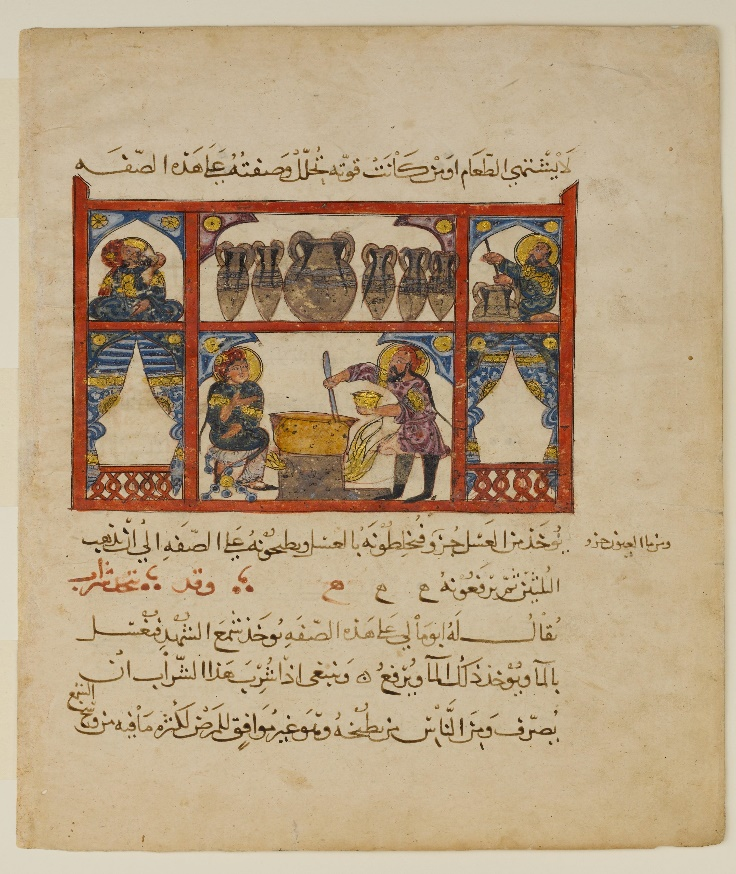 لا يشتهي الطعام او من كانت قوته تحلل وصفته على هذه الصفه
يؤخذ من العسل جزو فيخلطونه بالعسل ويطبخونه على الصفه الى ان يذهب
ومن ما العيون جزو
الثلثين ثم يرفعونه ح ح ح وقد يتخذ شراب
يقال له ابومالي على هذه الصفه يوخذ شمع الشهد فيغسل
بالما ويوخذ ذلك الما ويرفع وينبغي اذا شرب هذا الشراب ان
الشمع
يصرف ومن الناس من يطبخه وهو غير موافق للمرض لكثره ما فيه من وسخ